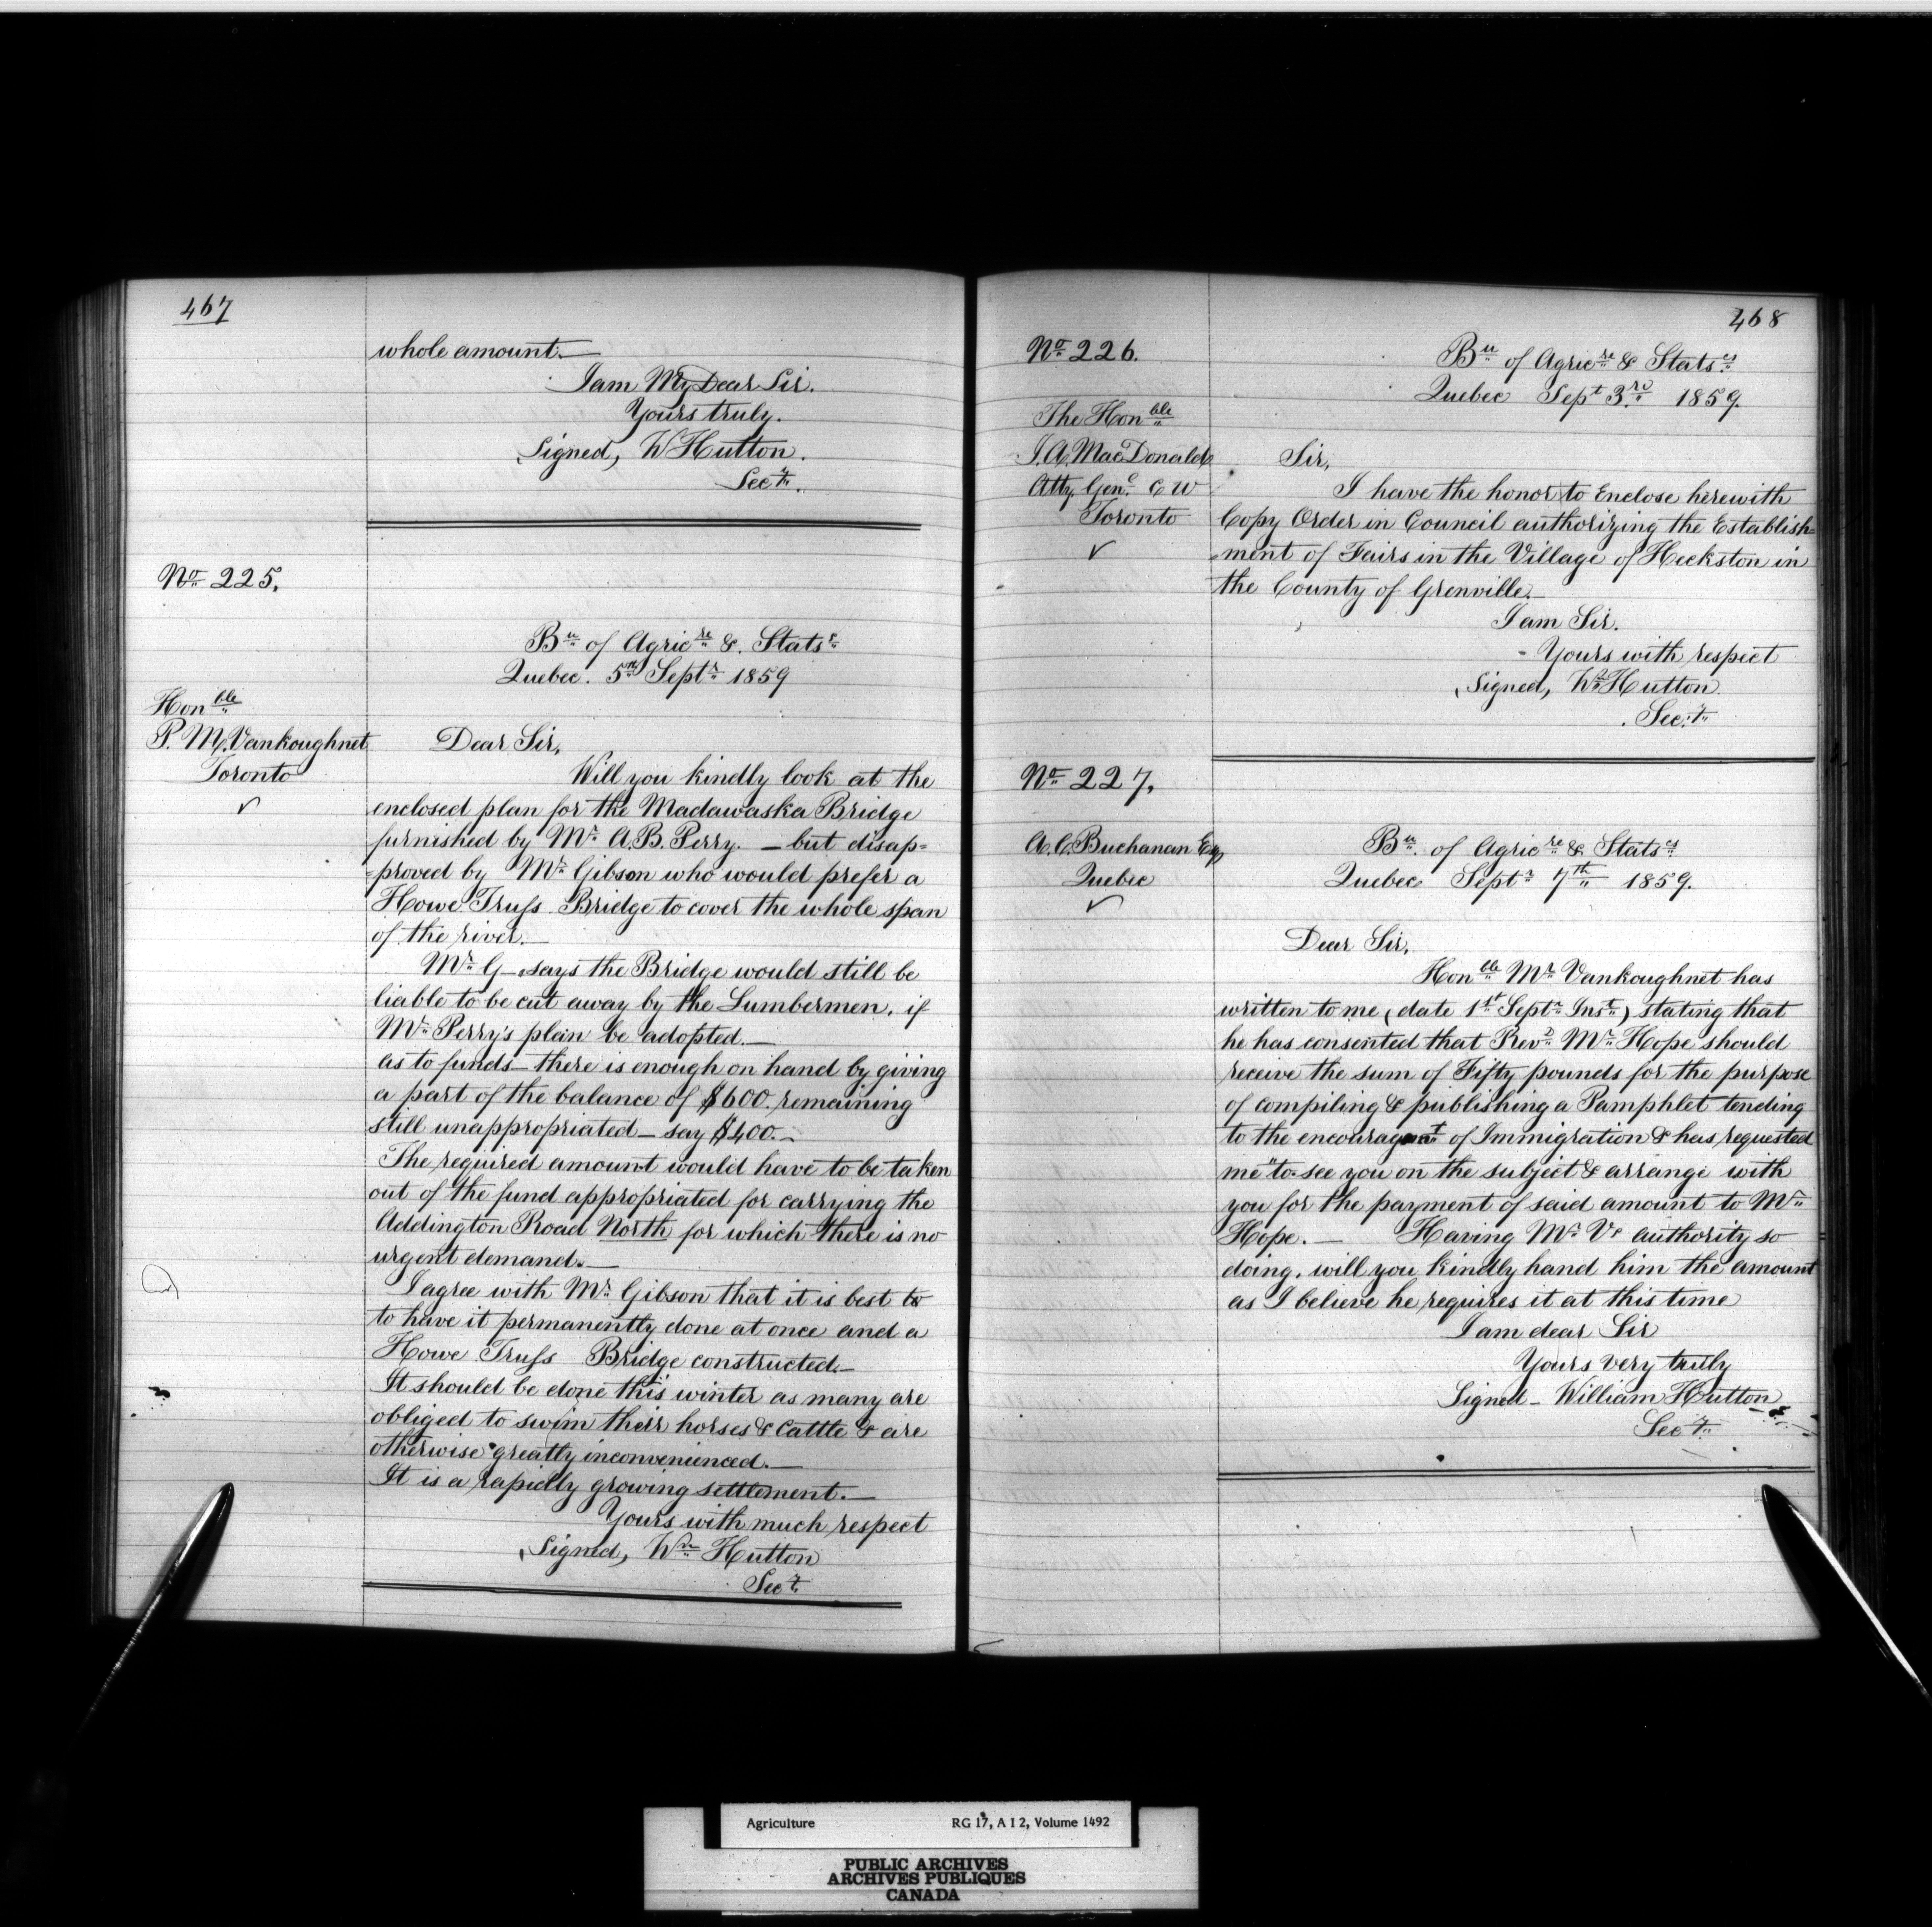 467
whole amount.—
I am My Dear Sir.
Yours truly.
Signed, W Hutton.
Secy.
No 225.
Bu of Agricre &. Stats
Quebec. 5th Septr 1859
Honble
P. M. Vankoughnet
Toronto
✓
Dear Sir,
Will you kindly look at the
enclosed plan for the Madawaska Bridge
furnished by Mr A. B. Perry. — but disap=
=proved by Mr Gibson who would prefer a
Howe Truss Bridge to cover the whole span
of the river.—
Mr G— says the Bridge would still be
liable to be cut away by the Lumbermen, if
Mr Perry's plan be adopted.—
as to funds— there is enough on hand by giving
a part of the balance of $600. remaining
still unappropriated— say $400.—
The required amount would have to be taken
out of the fund appropriated for carrying the
Addington Road North for which there is no
urgent demand.—
I agree with Mr Gibson that it is best to
to have it permanently done at once and a
Howe Truss Bridge constructed.—
It should be done this winter as many are
obliged to swim their horses & Cattle & are
otherwise greatly inconvenienced.—
It is a rapidly growing settlement.—
Yours with much respect
Signed, Wm Hutton
Secy.
468
No 226.
Bu of Agricre & Statscs
Quebec Sept 3rd 1859.
The Honble
J. A. MacDonald
Atty. Genl. C W
Toronto
✓
Sir,
I have the honor to Enclose herewith
Copy Order in Council authorizing the Establish=
=ment of Fairs in the Village of Heckston in
the County of Grenville.—
I am Sir.
Yours with respect
Signed, Wm Hutton
Secy.
No 227.
A. C. Buchanan Esq
Quebec
✓
Bu. of Agricre & Statscs
Quebec Septr 7th 1859.
Dear Sir,
Honble Mr Vankoughnet has
written to me (date 1st Septr Inst) stating that
he has consented that Revd Mr Hope should
receive the sum of Fifty pounds for the purpose
of compiling & publishing a Pamphlet tending
to the encouragmt of Immigration & has requested
me "to see you on the subject & arrange with
you for the payment of said amount to Mr
Hope. — Having Mr Vs authority so
doing, will you kindly hand him the amount
as I believe he requires it at this time
I am dear Sir
Yours very truly
Signed— William Hutton
Secy.
Agriculture RG 17, A I 2, Volume 1492
PUBLIC ARCHIVES
ARCHIVES PUBLIQUES
CANADA